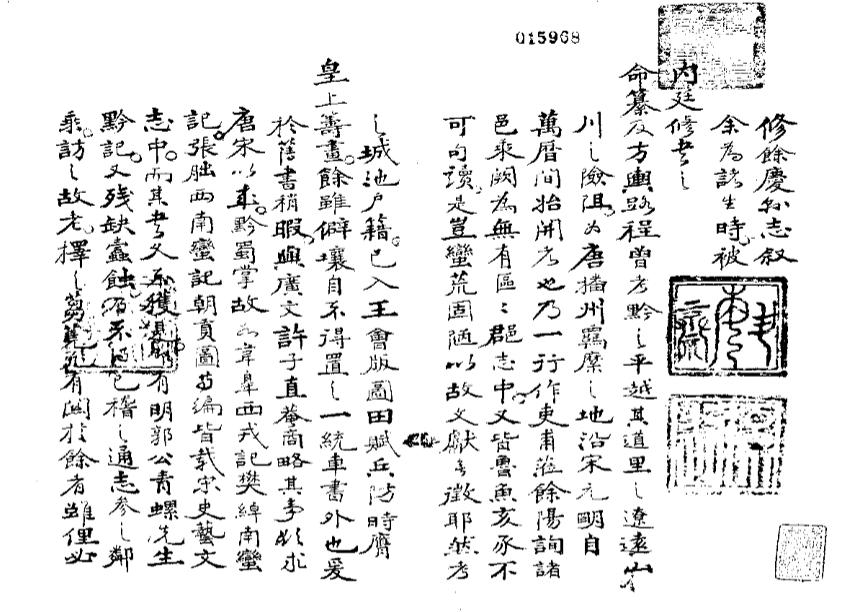 015968
修餘慶縣志敘
余為諸生時被
内廷修書之
命纂及方輿路程曾考黔之平越其道里之遼遠山
川之險阻為唐播州羈縻之地沿宋元明自
萬曆間始開考也乃一行作吏甫蒞餘陽詢諸
邑乘闕為無有區區郡志中又皆魯魚亥豕不
可句讀是豈蠻荒固陋以故文獻無徵耶然考
之城池户籍已入王會版圖田賦兵防時膺
皇上籌畫餘雖僻壤自不得置之一統車書外也爰
於舊書稍暇與廣文許子直菴商略其事欲求
唐宋以來黔蜀掌故如韋皋西戎記樊綽南蠻
記張朏西南蠻記朝貢圖諸編皆載宋史藝文
志中而其書又不獲見有明郭公青螺先生
黔記又殘缺蠹蝕不已稽之通志參之鄰
乘訪之故老擇之芻蕘有關於餘者雖俚必